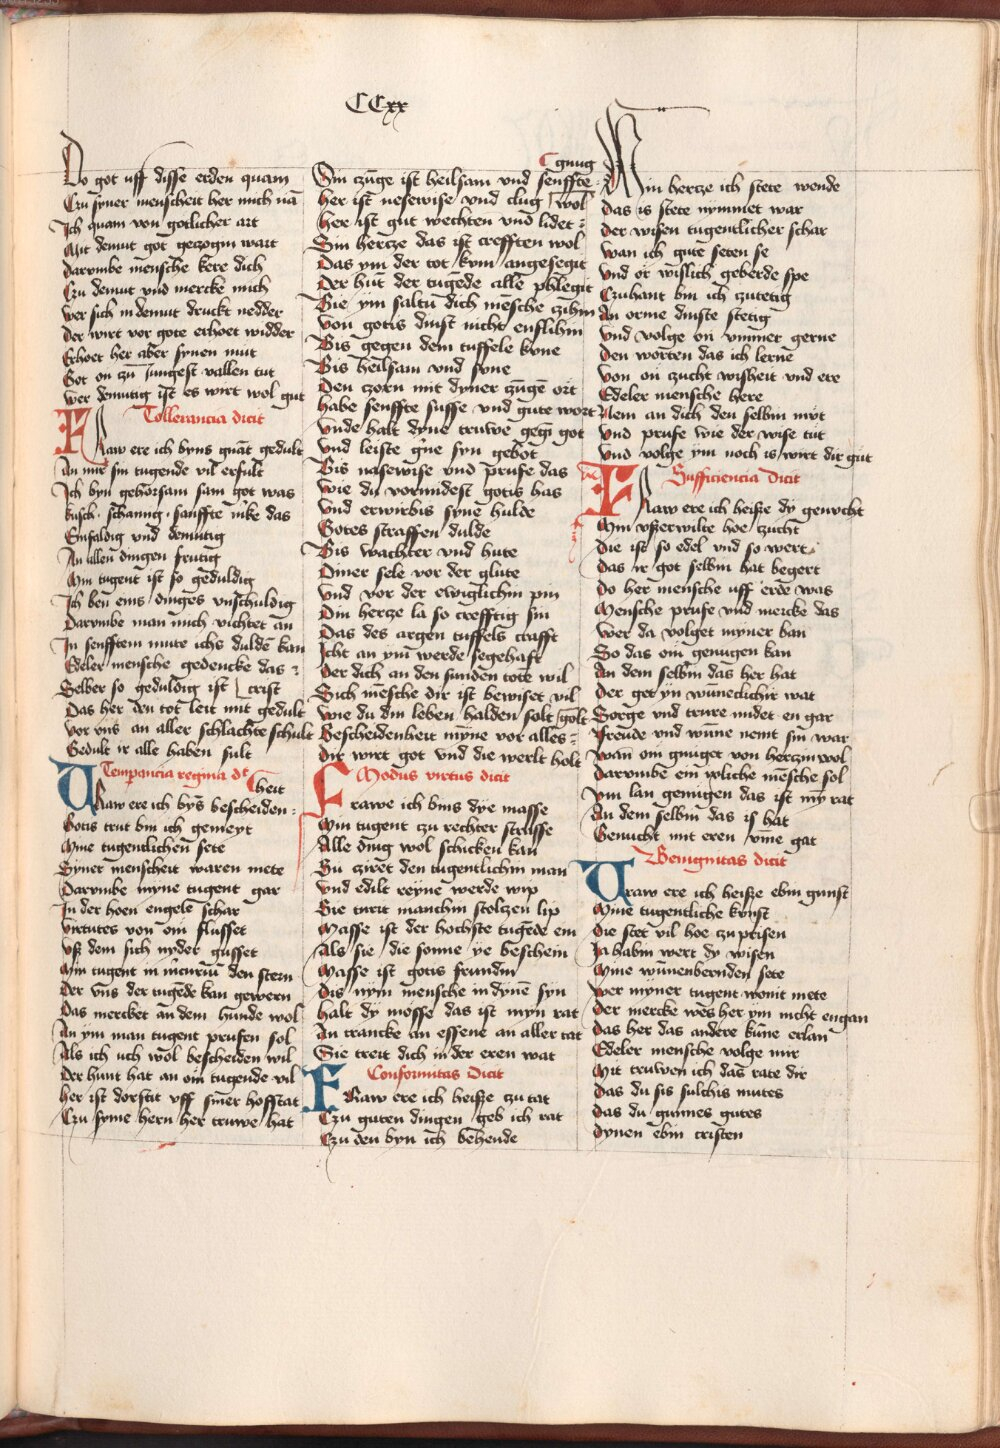 CCxx
Do got uff disse erden quam
Czu syner menscheit her mich nā
Ich quam von gotlicher art
Mit demut got geczogin wart
Darvmbe mensche kere dich
Czu demut und mercke mich
Wer sich in demut druckt nedder
Der wirt vor gote erhoet widder
Erhoet her aber synen mut
Got on zu iungest vallen tut
Wer demutig ist es wirt wol gut
Tollerancia dicit
FRaw ere ich byns gnāt gedult
An mir sin tugende vil erfult
Ich byn gehorsam sam got was
kusch schamig sanffte das
Einfaldig und demutig
An allen dingen frutig
Min tugent ist so geduldig
Ich ben eins dinges unschuldig
Darvmbe man mich vichtet an
In senfftem mute ichs duldē kan
Edeler mensche gedencke das
Selber so geduldig ist crist
Das her den tot leit mit gedult
Vor vns an aller schlachte schult
Gedult ir alle haben sult
Tempancia regina dt
FRaw ere ich bys bescheidenheit
Gotis trut bin ich gemeyt
Mine tugentlichen sete
Syner menscheit waren mete
Darvmbe myne tugent gar
In der hoen engele schar
Virtutes von om flusset
Uß dem sich nyder gusset
Min tugent in den stern
Der vns der tugēde kan gewern
Das mercket an dem hunde wol
An ym man tugent prufen sol
Als ich uch wol bescheiden wil
Der hunt hat an om tugende vil
her ist dorstit uff siner hoffstat
Czu syme hern her truwe hat
Sin zunge ist heilsam und senffte gnug
her ist nesewise und clug
her ist gut wechten und lidet wol
Sin hertze das ist crefften wol
Das ym der tot kum angesegit
Der hut der tugēde alle phlegit
Sie ym saltu dich mēsche
Von gotis dinst nicht enflihin
Bis gegen dem tuffele kune
Bis heilsam und syne
Den zorn mit dyner zunge ort
habe senffte susse und gute wort
Unde halt dyne truwe gegī got
Und leiste gne syn gebot
Bis nasewise und prufe das
Wie du vormidest gotis has
Und erwirbis syne hulde
Gotes straffen dulde
Bis wachter und hute
Diner sele vor der glute
Und vor der ewiglichin pin
Din hertze la so crefftig sin
Das des argen tuffels crafft
Icht an ym werde segehaft
Der dich an den sunden tote wil
Sich mēsche dir ist bewiset vil
Wie du din leben halden solt
Bescheidenheit mȳne vor alles golt
Dir wirt got und die werlt holt
Modus virtus dicit
Frawe ich bins dye masse
Min tugent czu rechter strasse
Alle ding wol schicken kan
Su ziret den tugentlichin man
Und edilt reyne werde wip
Sie turit manchin stolczen lip
Masse ist der hochste tugēde ein
Als sie die sonne ye beschein
Masse ist gotis frundin
Dis nym mensche in dynē syn
halt dy mosse das ist myn rat
An trancke an essene an aller tat
Sie treit dich in der eren wat
Conformitas Dicit
FRaw ere ich heiße zu tat
Czu guten dingen geb ich rat
Czu den byn ich behende
Min hertze ich stete wende
Das is stete nymmet war
Der wisen tugentlicher schar
Wan ich gute seten se
Und or wislich geberde spe
Czuhant bin ich zutetig
An orme dinste stetig
Und volge on ummer gerne
Den worten das ich lerne
Von on zucht wisheit und ere
Edeler mensche here
Nem an dich den selbin mut
Und prufe wie der wise tut
Und volge ym noch is wirt dir gut
Sufficiencia Dicit
FRaw ere ich heiße dy genucht
Min vßerwilte hoe zucht
Die ist so edel und so wert
Das ir got selbin hat begert
Do her mensche uff erde was
Mensche prufe und mercke das
Wer da volget myner ban
So das om genugen kan
An dem selbin das her hat
Der get yn wūneclichir wat
Sorge und trure midet en gar
Freude und wūne nemt sin war
Wan om gnuget von hertzin wol
Darvmbe ein ycliche mēsche sol
Ym lan genugen das ist my rat
An dem selbin das is hat
Genucht mit eren vme gat
Benignitas dicit
FRaw ere ich heiße ebin gunst
Mine tugentliche kunst
Die stet vil hoe zu prisen
Ja habin wert dy wisen
Mine wūnenbernden sete
Wer myner tugent wonit mete
Der mercke wes her ym nicht engan
Das her das andere kūne erlan
Edeler mensche volge mir
Mit truwen ich das rate dir
Das du sis sulchis mutes
Das du gunnes gutes
Dynen ebin cristen